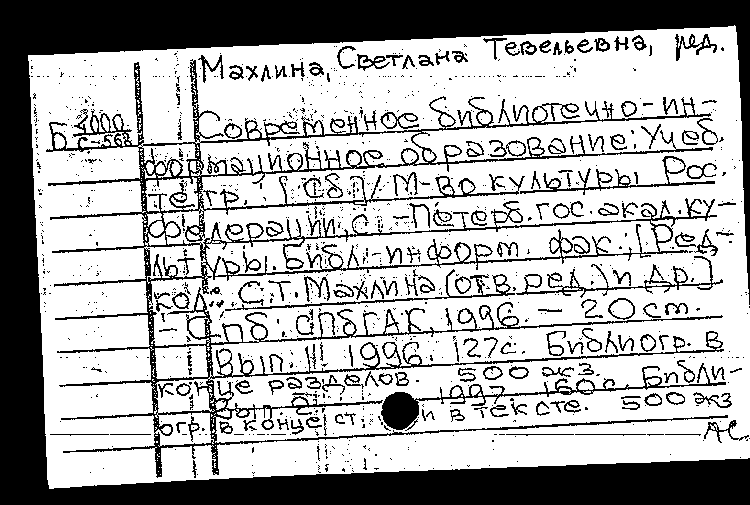 Махлина, Светлана Тевельевна, ред.
Б 2000
С-568
Современное библиотечно-ин-
формационное образование: Учеб.
тетр. : [Сб.] / М-во культуры Рос.
федерации, С.-Петерб. гос. акад. ку-
льтуры. Библ.-информ. фак.; [Ред.
кол.: С.Т. Махлина (отв. ред.) и др.]
- СПб : СПбГАК, 1996. - 20 см.
Вып. 1. 1996. 127 с. Библиогр. в
конце разделов. 500 экз.
Вып. 2. 1997. 160 с. Библи-
огр. в конце ст. и в тексте. 500 экз
АС